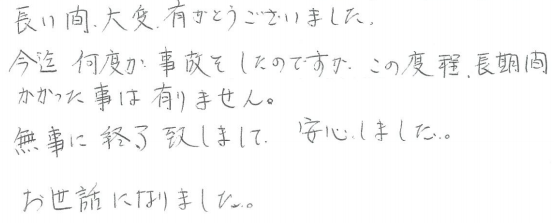 長い間、大変、有がとうございました。
今迄 何度か 事故をしたのですが、この度程、長期間
かかった事は有りません。
無事に 終了 致しまして、安心しました。
お世話になりました。